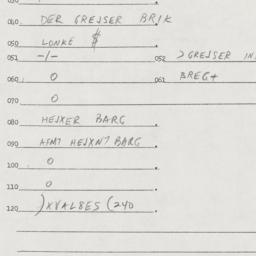 040. DER GREJSER BRIK
050 LONKE $
051 -/- 052 > GREJSER IN
060. 0 061 BREG+
070 0
080 HEJXER BARG
090 AFMT HEJXNT BARG
100. 0
110 0
120 )XVAL8ES (240